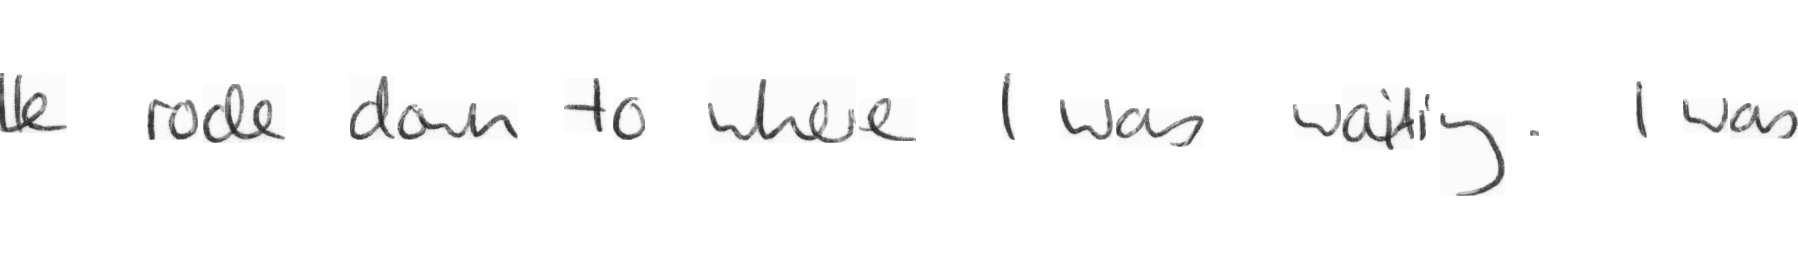 He rode down to where I was waiting. I was